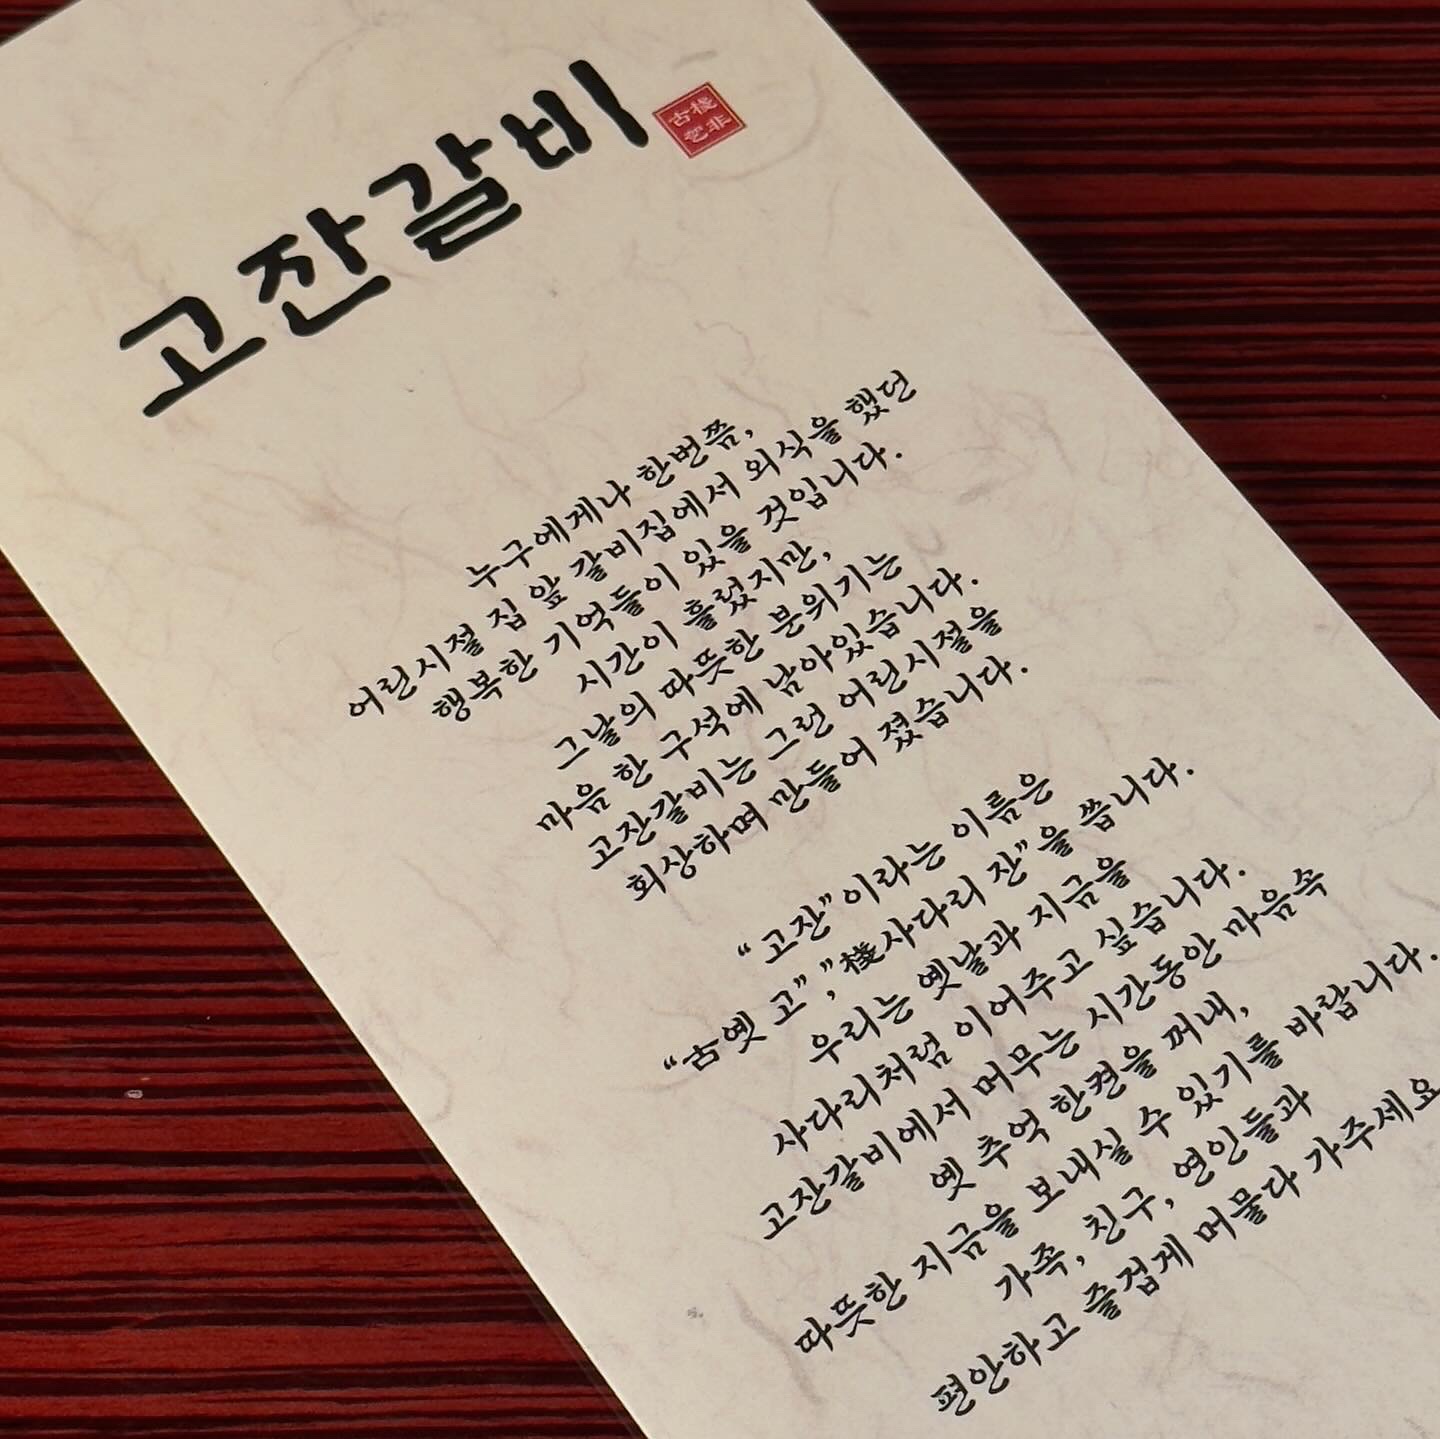 고잔갈비
古棧
乫非
누구에게나 한번쯤,
어린시절 집 앞 갈비집에서 외식을 했던
행복한 기억들이 있을 것입니다.
시간이 흘렀지만,
그날의 따뜻한 분위기는
마음 한 구석에 남아있습니다.
고잔갈비는 그런 어린시절을
회상하며 만들어 졌습니다.
“고잔”이라는 이름은
“古옛 고”,”棧사다리 잔”을 씁니다.
우리는 옛날과 지금을
사다리처럼 이어주고 싶습니다.
고잔갈비에서 머무는 시간동안 마음속
옛 추억 한켠을 꺼내,
따뜻한 지금을 보내실 수 있기를 바랍니다.
가족, 친구, 연인들과
편안하고 즐겁게 머물다 가주세요